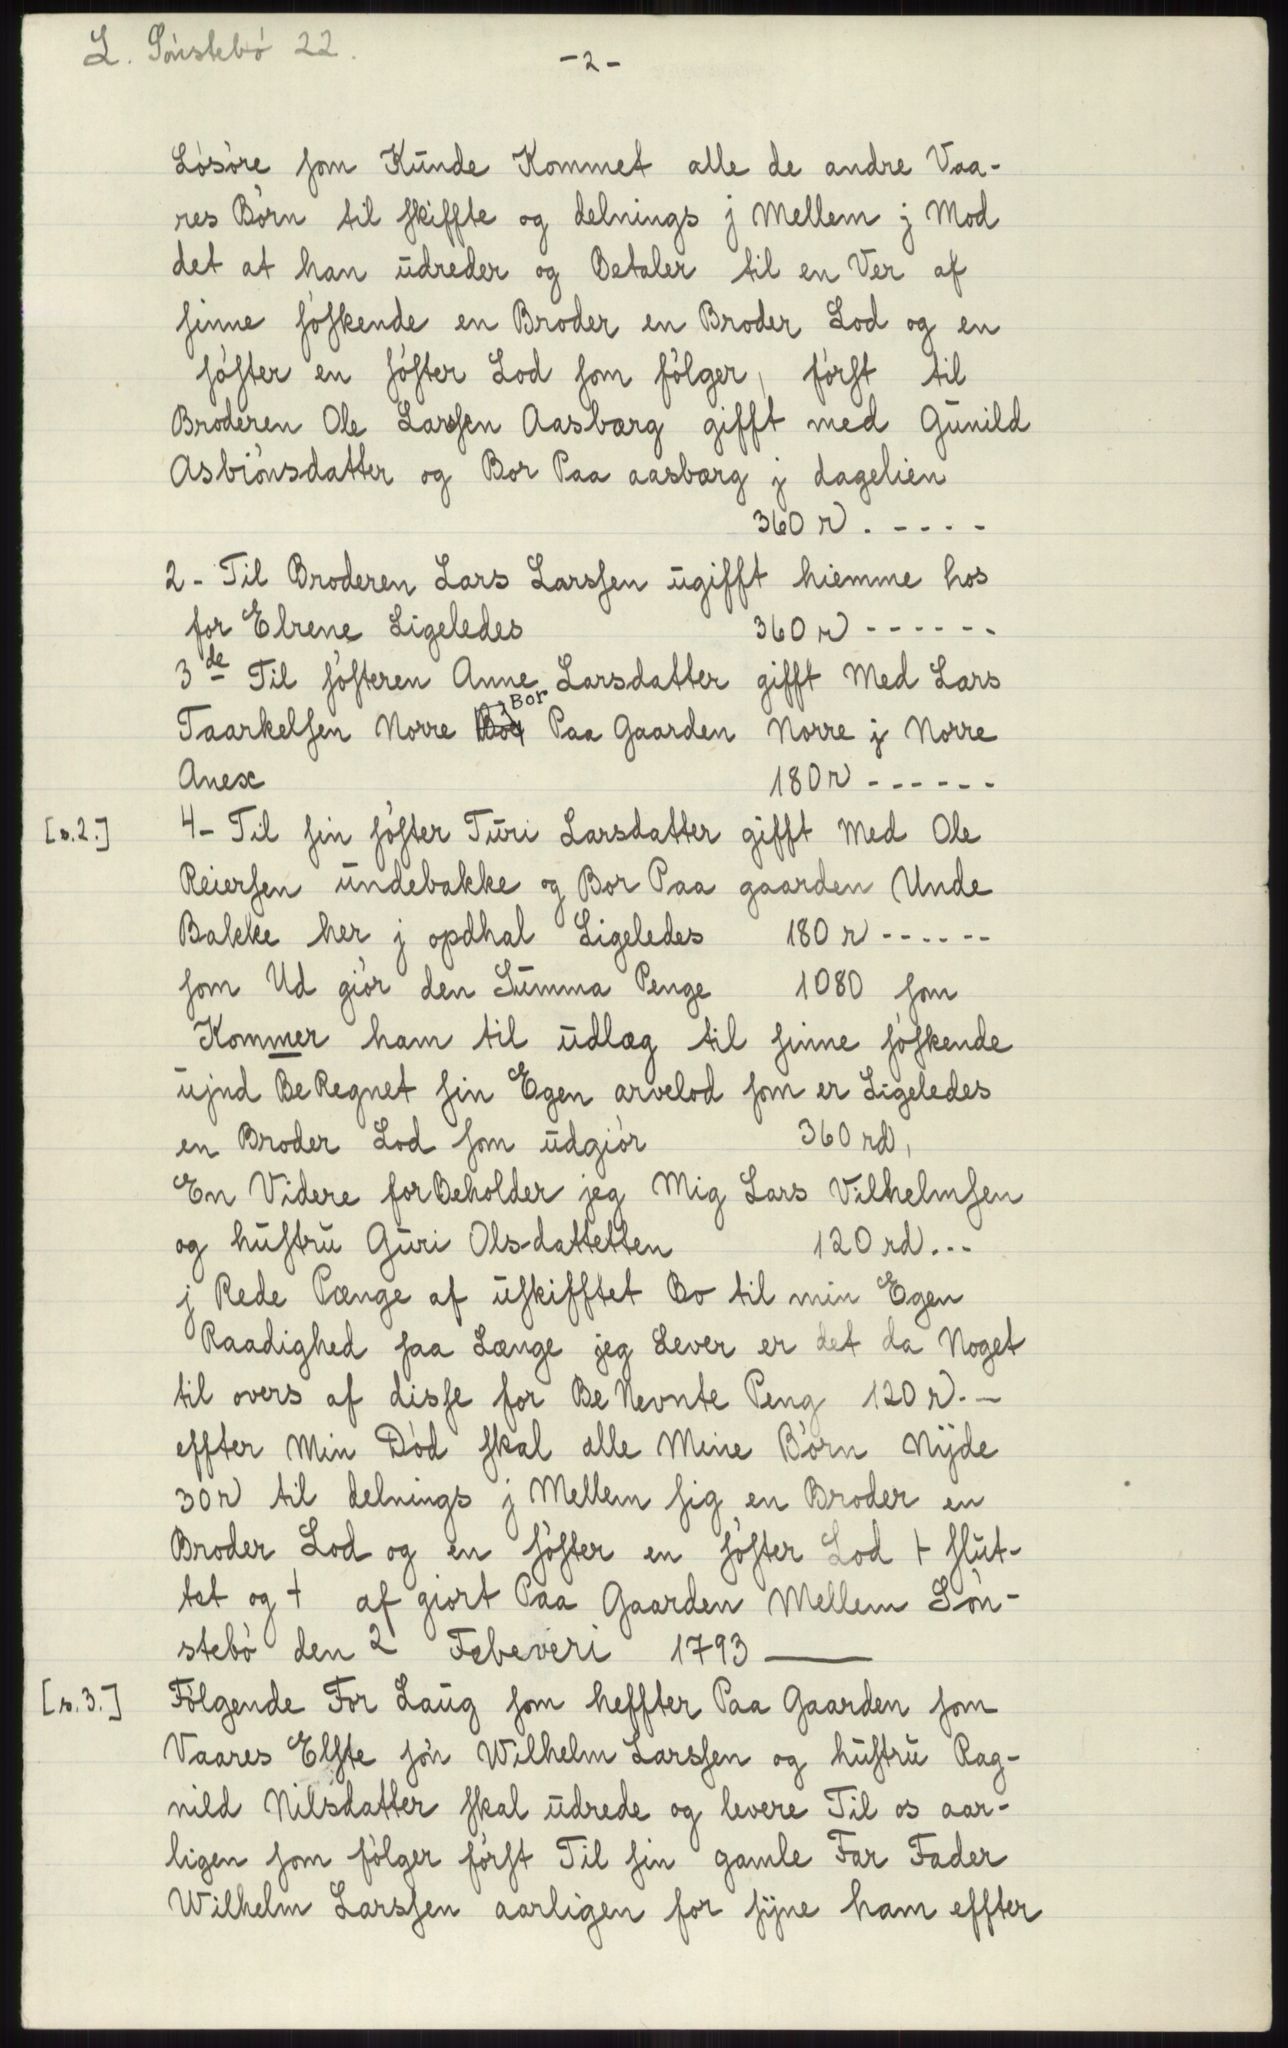 L. Sónstebó 22.
- 2 -
Lósóre som Kunde Kommet alle de andre Vaa-
res Börn til skiffte og delnings j Mellem j Mod
det at han udreder og Betaler til en Ver af
sinne sóskende en Broder en Broder Lod og en
sóster en sóster Lod som fólger, fórst til
Broderen Ole Larssen Aasbærg gifft med Gunild
Asbiónsdatter og Bor Paa aasbærg j dagelien
360 r . - - - -
2 - Til Broderen Lars Larssen ugifft hiemme hos
for Elrene Ligeledes 360 r - - - - - -
3de Til sósteren Anne Larsdatter gifft Med Lars
Taarkelsen Norre Bor Paa Gaarden Norre j Norre
Anex 180 r - - - - - -
[s.2.] 4 - Til sin sóster Turi Larsdatter gifft Med Ole
Reiersen undebakke og Bor Paa gaarden Unde
Bakke her j opdhal Ligeledes 180 r - - - - - -
som Ud giór den Summa Penge 1080 som
Kommer ham til udlæg til sinne sóskende
ujnd BeRegnet sin Egen arvelod som er Ligeledes
en Broder Lod som udgiór 360 rd,
En Videre forBeholder jeg Mig Lars Vilhelmsen
og hustru Guri Olsdattetten 120 rd. - -
j Rede Pænge af uskifftet Bo til min Egen
Raadighed saa Længe jeg Lever er det da Noget
til overs af disse for Be Nevnte Peng 120 r. -
effter Min Dód skal alle Mine Bórn Nyde
30 r til delnings j Mellem sig en Broder en
Broder Lod og en sóster en sóster Lod + slut-
tet og + af giort Paa Gaarden Mellem Són-
stebó den 2 Febeveri 1793 ——
[s.3.] Fólgende For Laug som heffter Paa Gaarden som
Vaares Elste són Wilhelm Larssen og hustru Rag-
nild Nilsdatter skal udrede og levere Til os aar-
ligen som fólger fórst Til sin gamle Far Fader
Wilhelm Larssen aarligen for syne ham effter